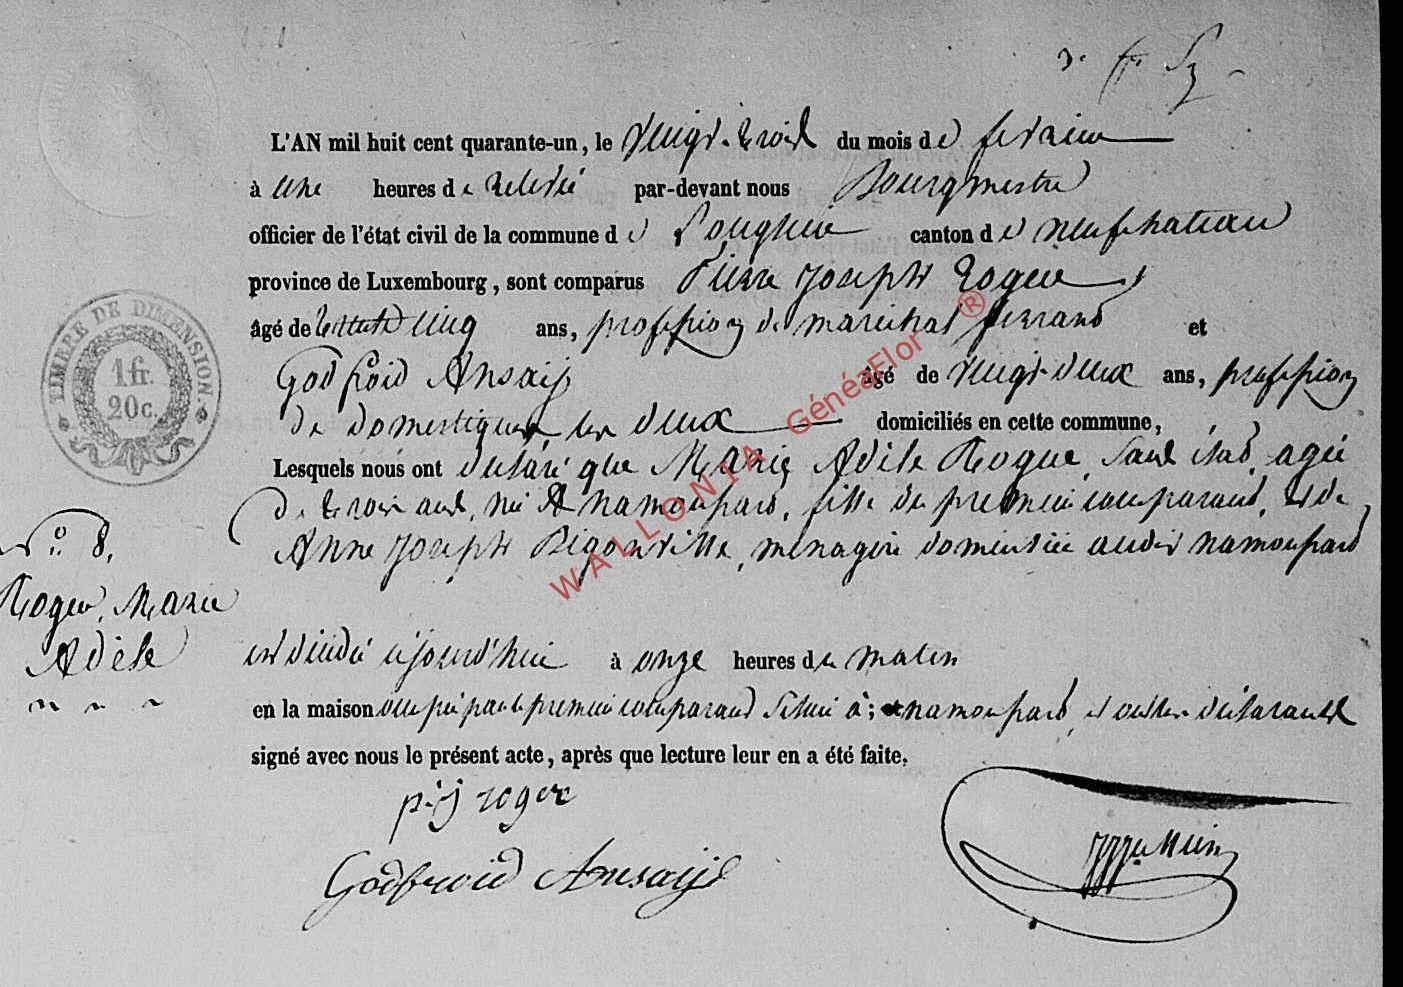 L'AN mil huit cent quarante-un, le vingt-trois du mois de fevrier
à une heures de relevée par-devant nous Bourgmestre
officier de l'état civil de la commune de Longlier canton de neufchateau
province de Luxembourg, sont comparus Pierre Joseph Roger
âgé de cinq ans, profession de marechal ferrand et
Godfroid Ansay âgé de vingt-deux ans, profession
de domestique, les deux domiciliés en cette commune,
Lesquels nous ont declaré que Marie Adèle Roger, sans état, agée
de trois ans, née à namoussard, fille du premier comparant, et de
Anne Joseph Bigonville, menagère domiciliée audit namoussard
N° 8.
Roger, Marie
Adèle
est décédée aujourd'hui à onze heures du matin
en la maison occupée par le premier comparant située à namoussard, et les declarants
signé avec nous le présent acte, après que lecture leur en a été faite.
p. j roger
Godfroid Ansay
TIMBRE DE DIMENSION.
1 fr.
20 c.
WALLONIA GénéaFlor ®